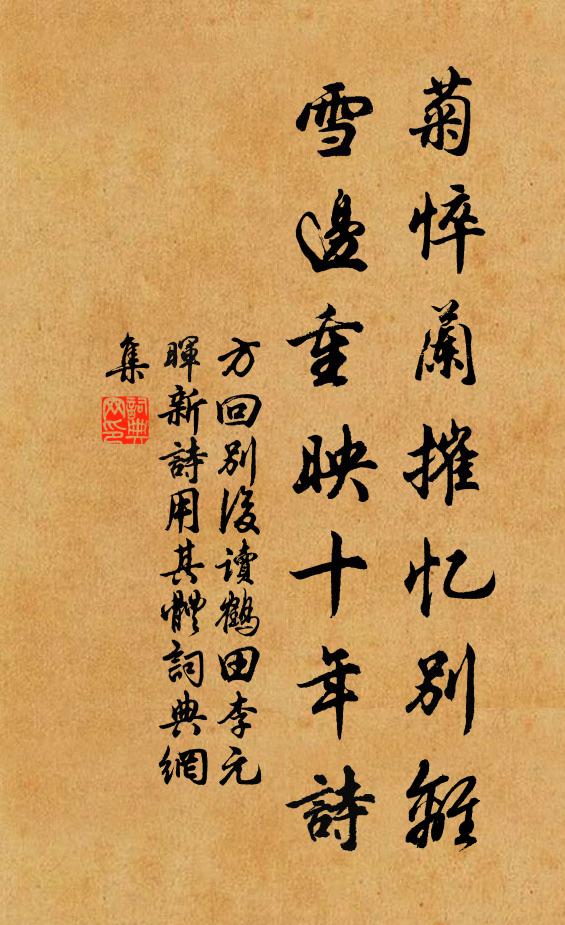 菊悴蘭摧忆別離
雪邊重映十年詩
方回別後讀鶴田李元
暉新詩用其體詞典網
集
詞典網印